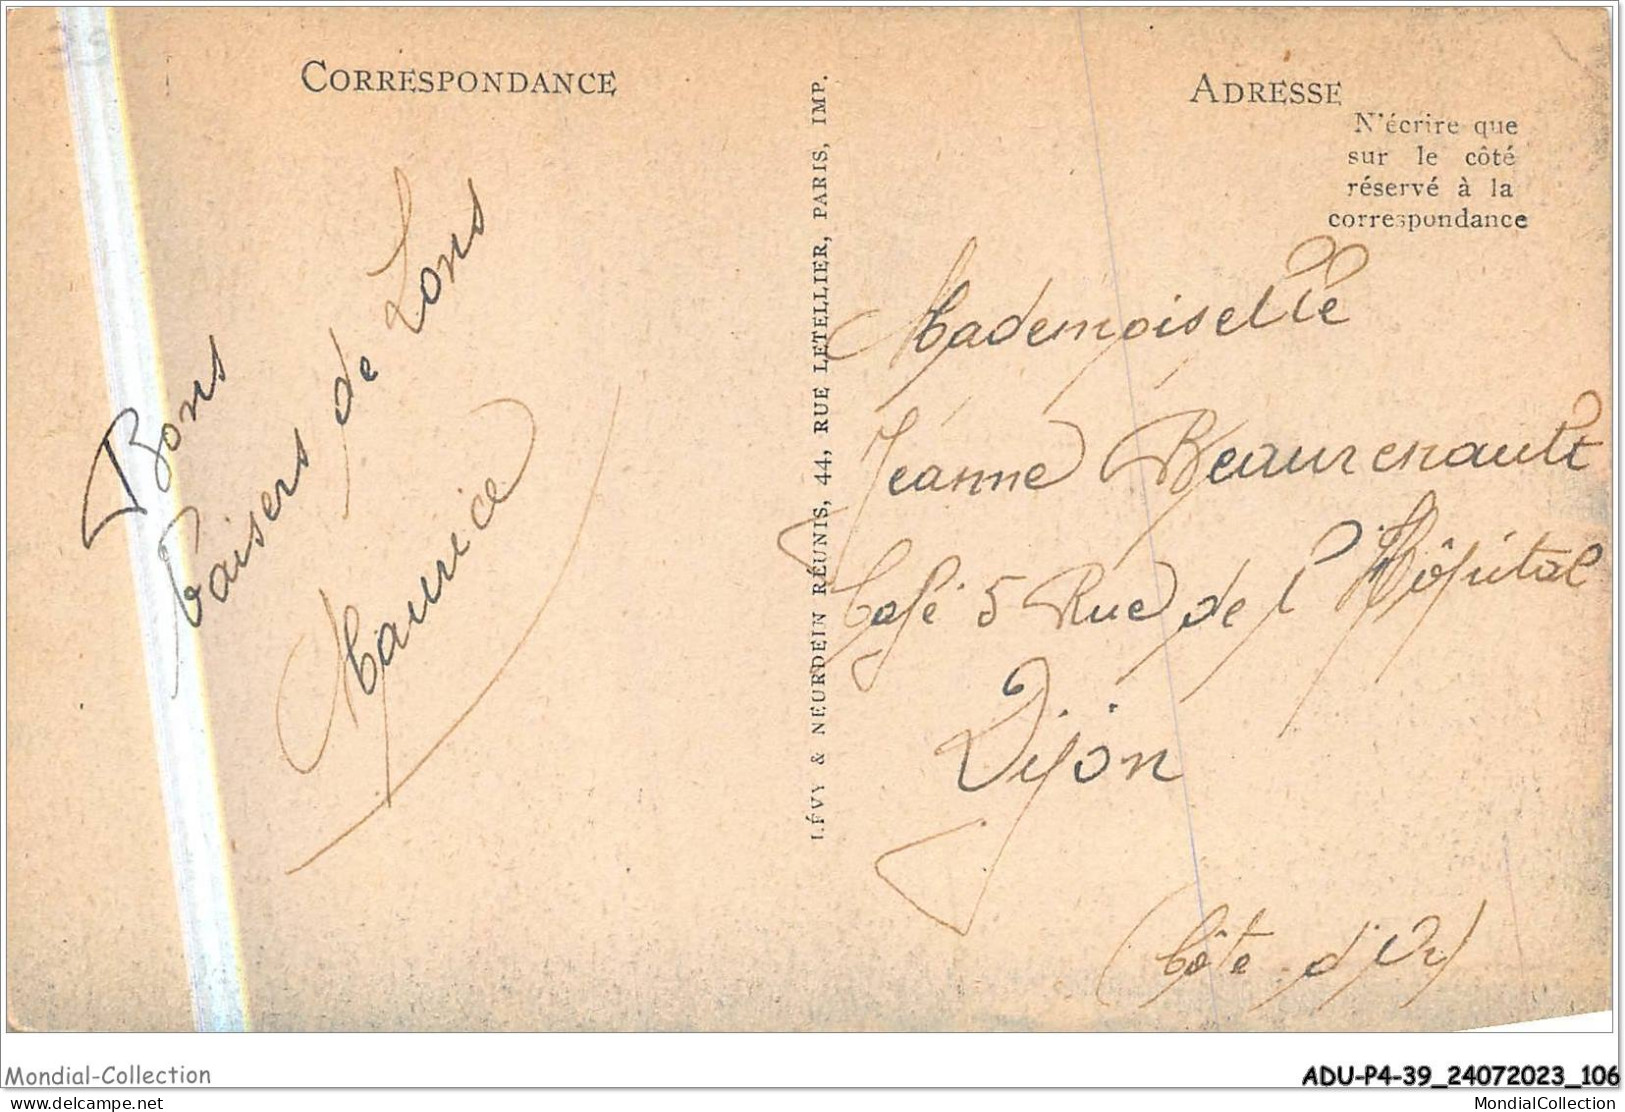 CORRESPONDANCE
Bons
baisers de Lons
Maurice
LÉVY & NEURDEIN RÉUNIS, 44, RUE LETELLIER, PARIS, IMP.
ADRESSE
N'écrire que
sur le côté
réservé à la
correspondance
Mademoiselle
Jeanne Beaurenault
Café 5 Rue de l'Hôpital
Dijon
(Côte d'Or)
Mondial-Collection
ADU-P4-39_24072023_106
delcampe.net
MondialCollection